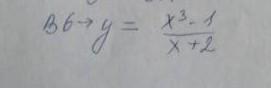 В6 → y = (x³ - 1)/(x + 2)